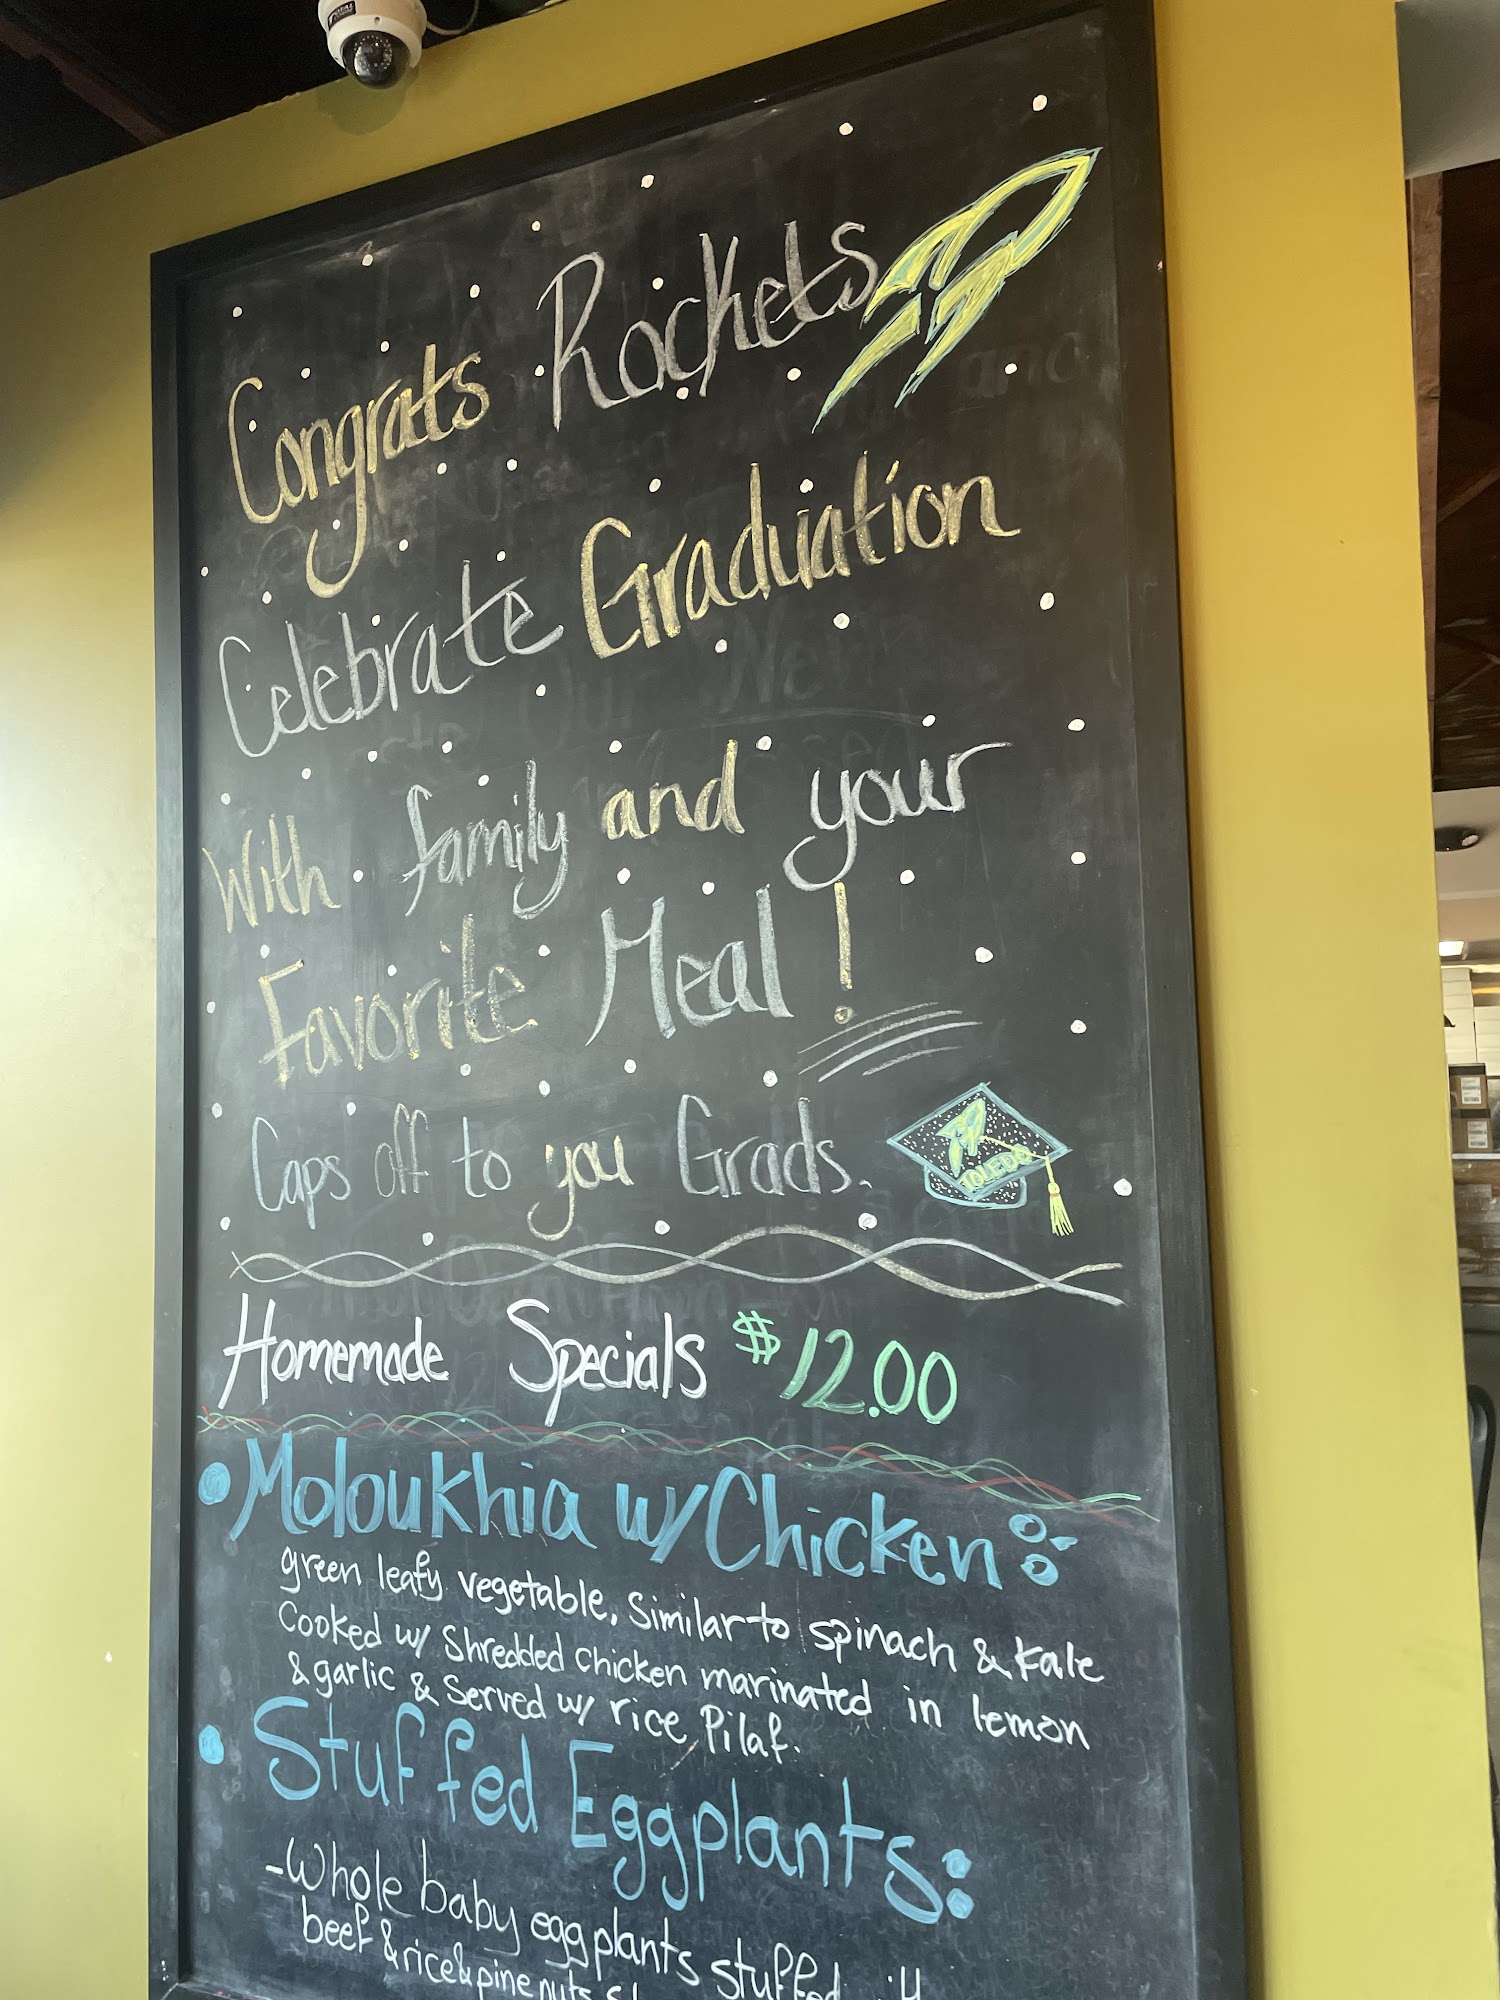 Congrats Rockets
Celebrate Graduation
With family and your
Favorite Meal!
Caps off to you Grads.
TOLEDO
Homemade Specials $12.00
• Moloukhia w/ Chicken:
green leafy vegetable, Similar to spinach & kale
Cooked w/ Shredded chicken marinated in lemon
& garlic & Served w/ rice Pilaf.
• Stuffed Eggplants:
- Whole baby eggplants stuffed
beef & rice & pine nuts